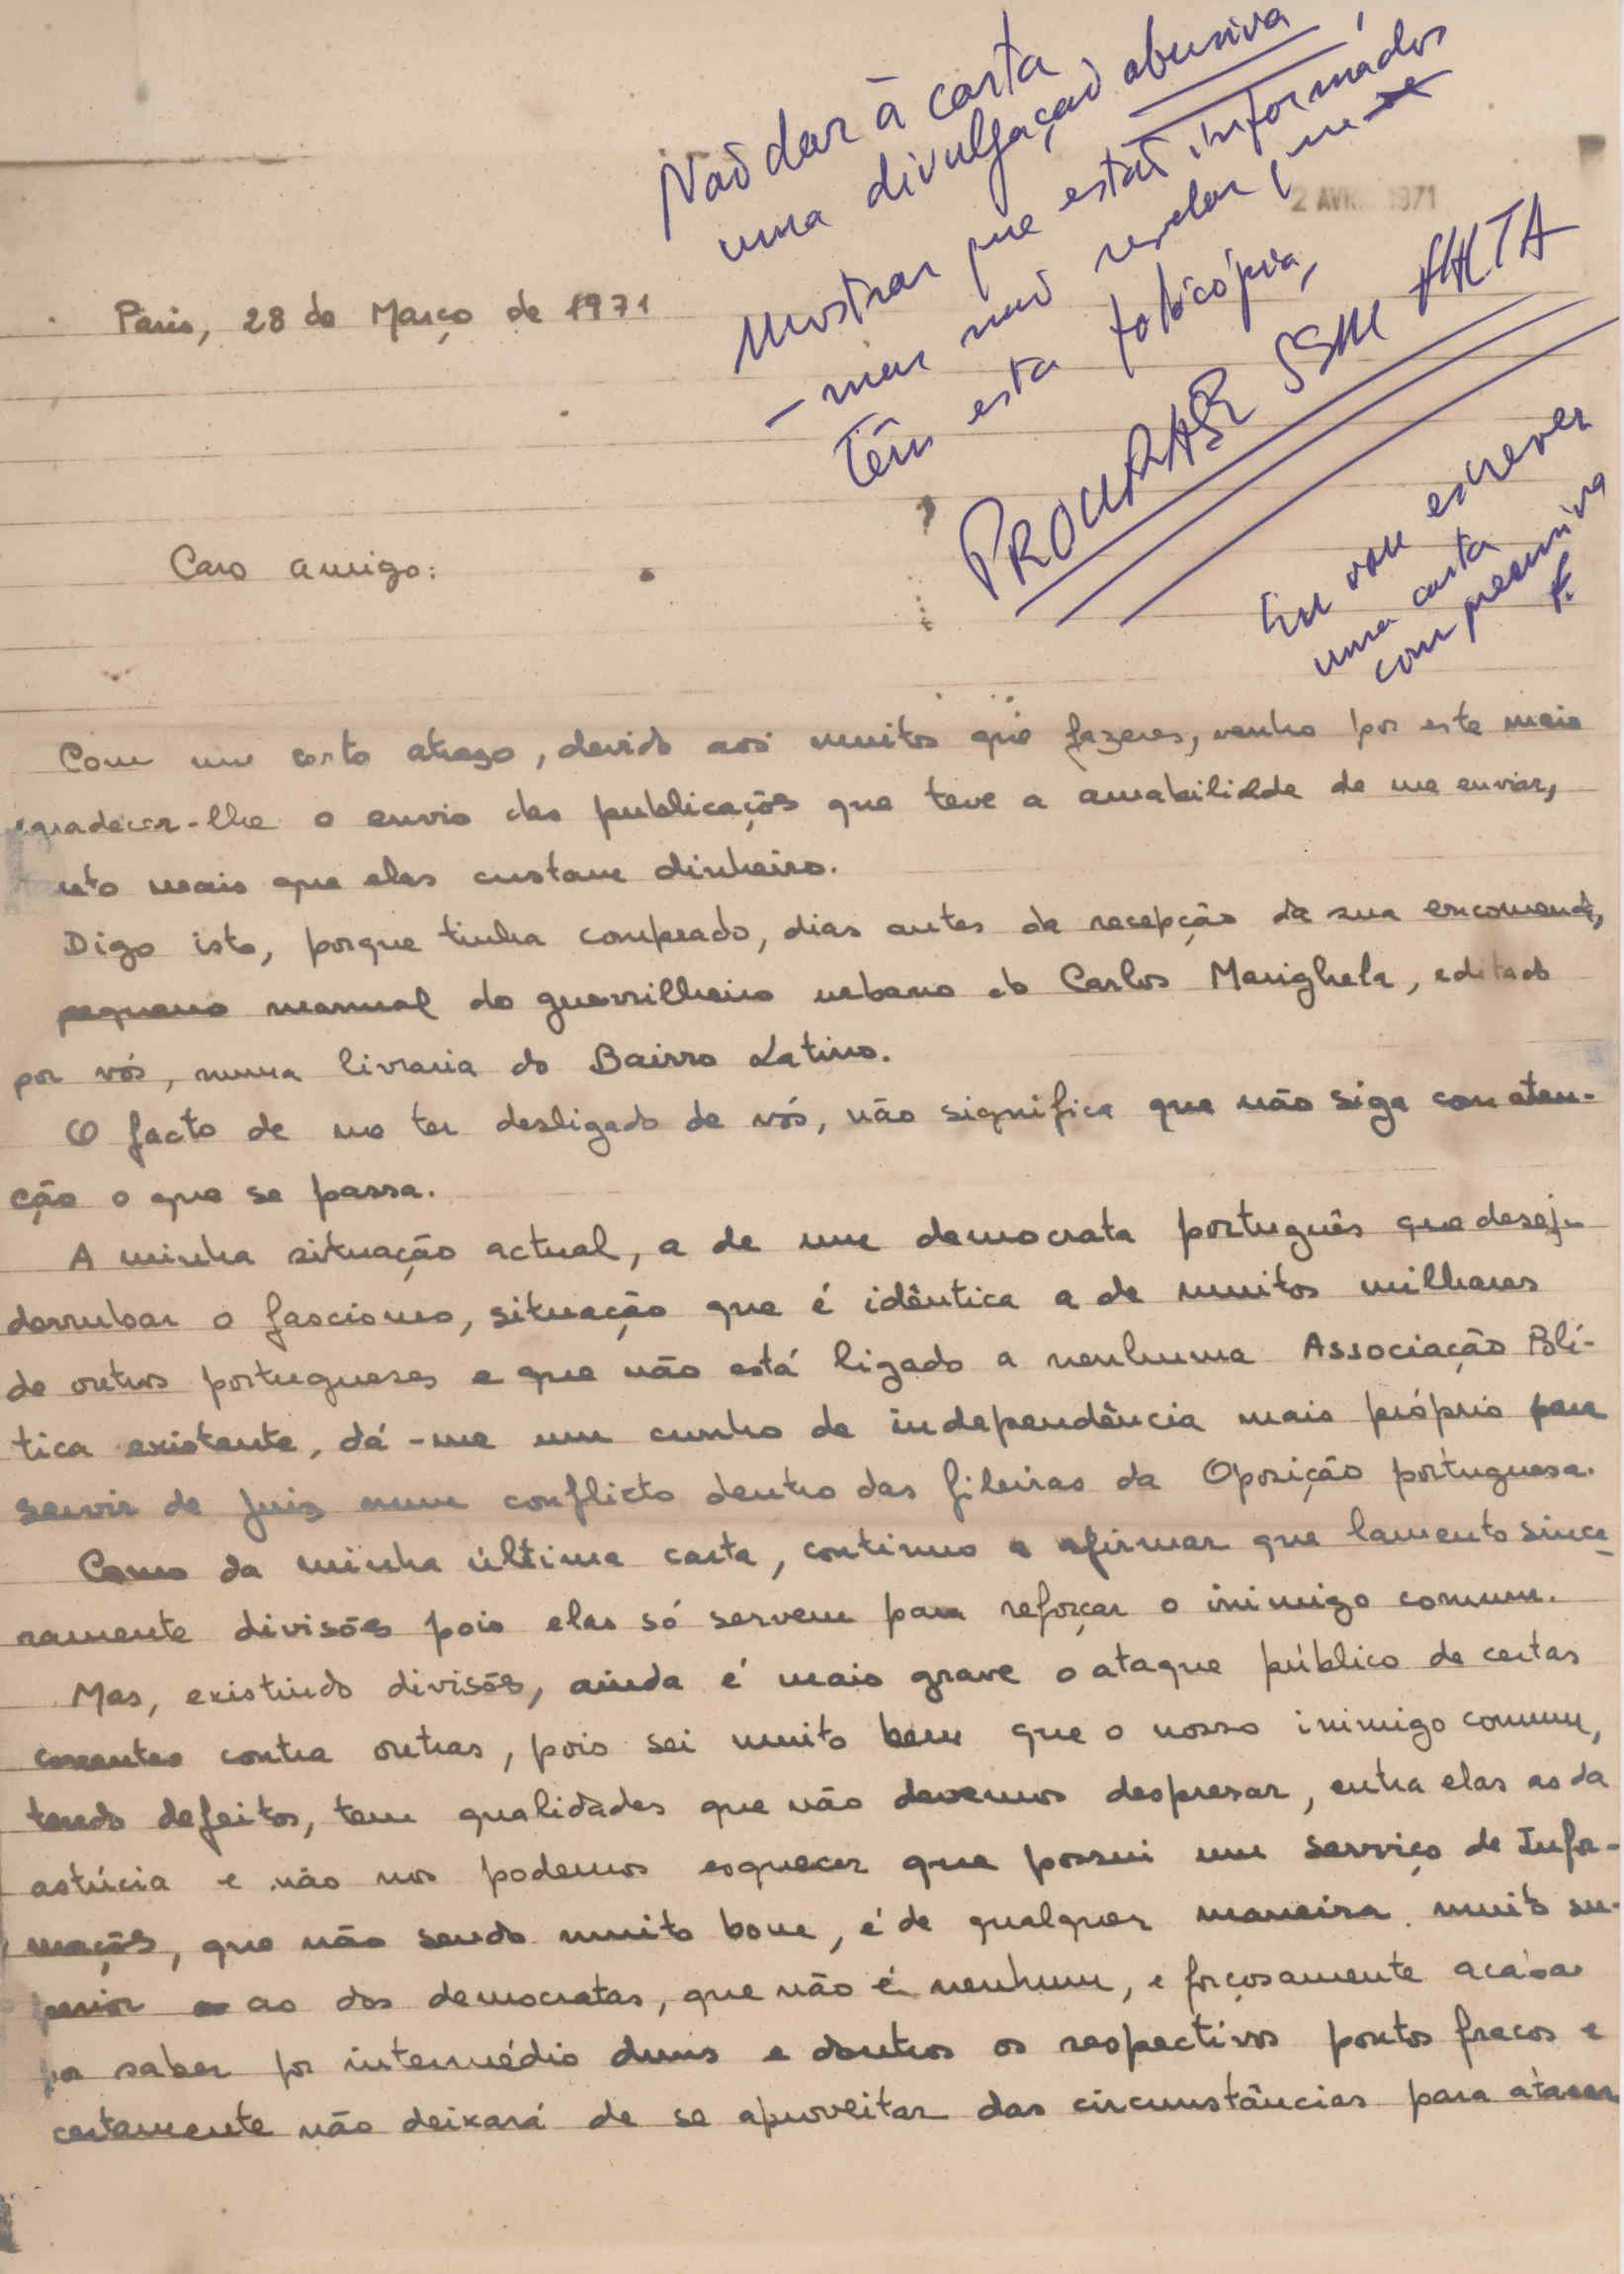 Não dar à carta
uma divulgação abusiva,
Mostrar que estão informados
- mas não revelar que se
têm esta fotocópia,
PROCURAR SEM FALTA
Eu vou escrever
uma carta
compreensiva
F.
2 AVR. 1971
Paris, 28 de Março de 1971
Caro amigo:
Com um certo atrazo, devido aos muitos que fazeres, venho por este meio
agradecer-lhe o envio das publicações que teve a amabilidade de me enviar,
tanto mais que elas custam dinheiro.
Digo isto, porque tinha comprado, dias antes da recepção da sua encomenda,
pequeno manual do guerrilheiro urbano do Carlos Marighela, editado
por vós, numa livraria do Bairro Latino.
O facto de me ter desligado de vós, não significa que não siga com aten-
ção o que se passa.
A minha situação actual, a de um democrata português que deseja
derrubar o fascismo, situação que é idêntica a de muitos milhares
de outros portugueses e que não está ligado a nenhuma Associação Polí-
tica existente, dá-me um cunho de independência mais próprio para
servir de juiz num conflicto dentro das fileiras da Oposição portuguesa.
Como da minha última carta, continuo a afirmar que lamento since-
ramente divisões pois elas só servem para reforçar o inimigo comum.
Mas, existindo divisões, ainda é mais grave o ataque público de certas
correntes contra outras, pois sei muito bem que o nosso inimigo comum,
tendo defeitos, tem qualidades que não devemos despresar, entra elas as da
astúcia e não nos podemos esquecer que possui um serviço de Infor-
mações, que não sendo muito bom, é de qualquer maneira muito su-
perior ao dos democratas, que não é nenhum, e forçosamente acaba
por saber por intermédio duns e doutros os respectivos pontos fracos e
certamente não deixará de se aproveitar das circunstâncias para atacar